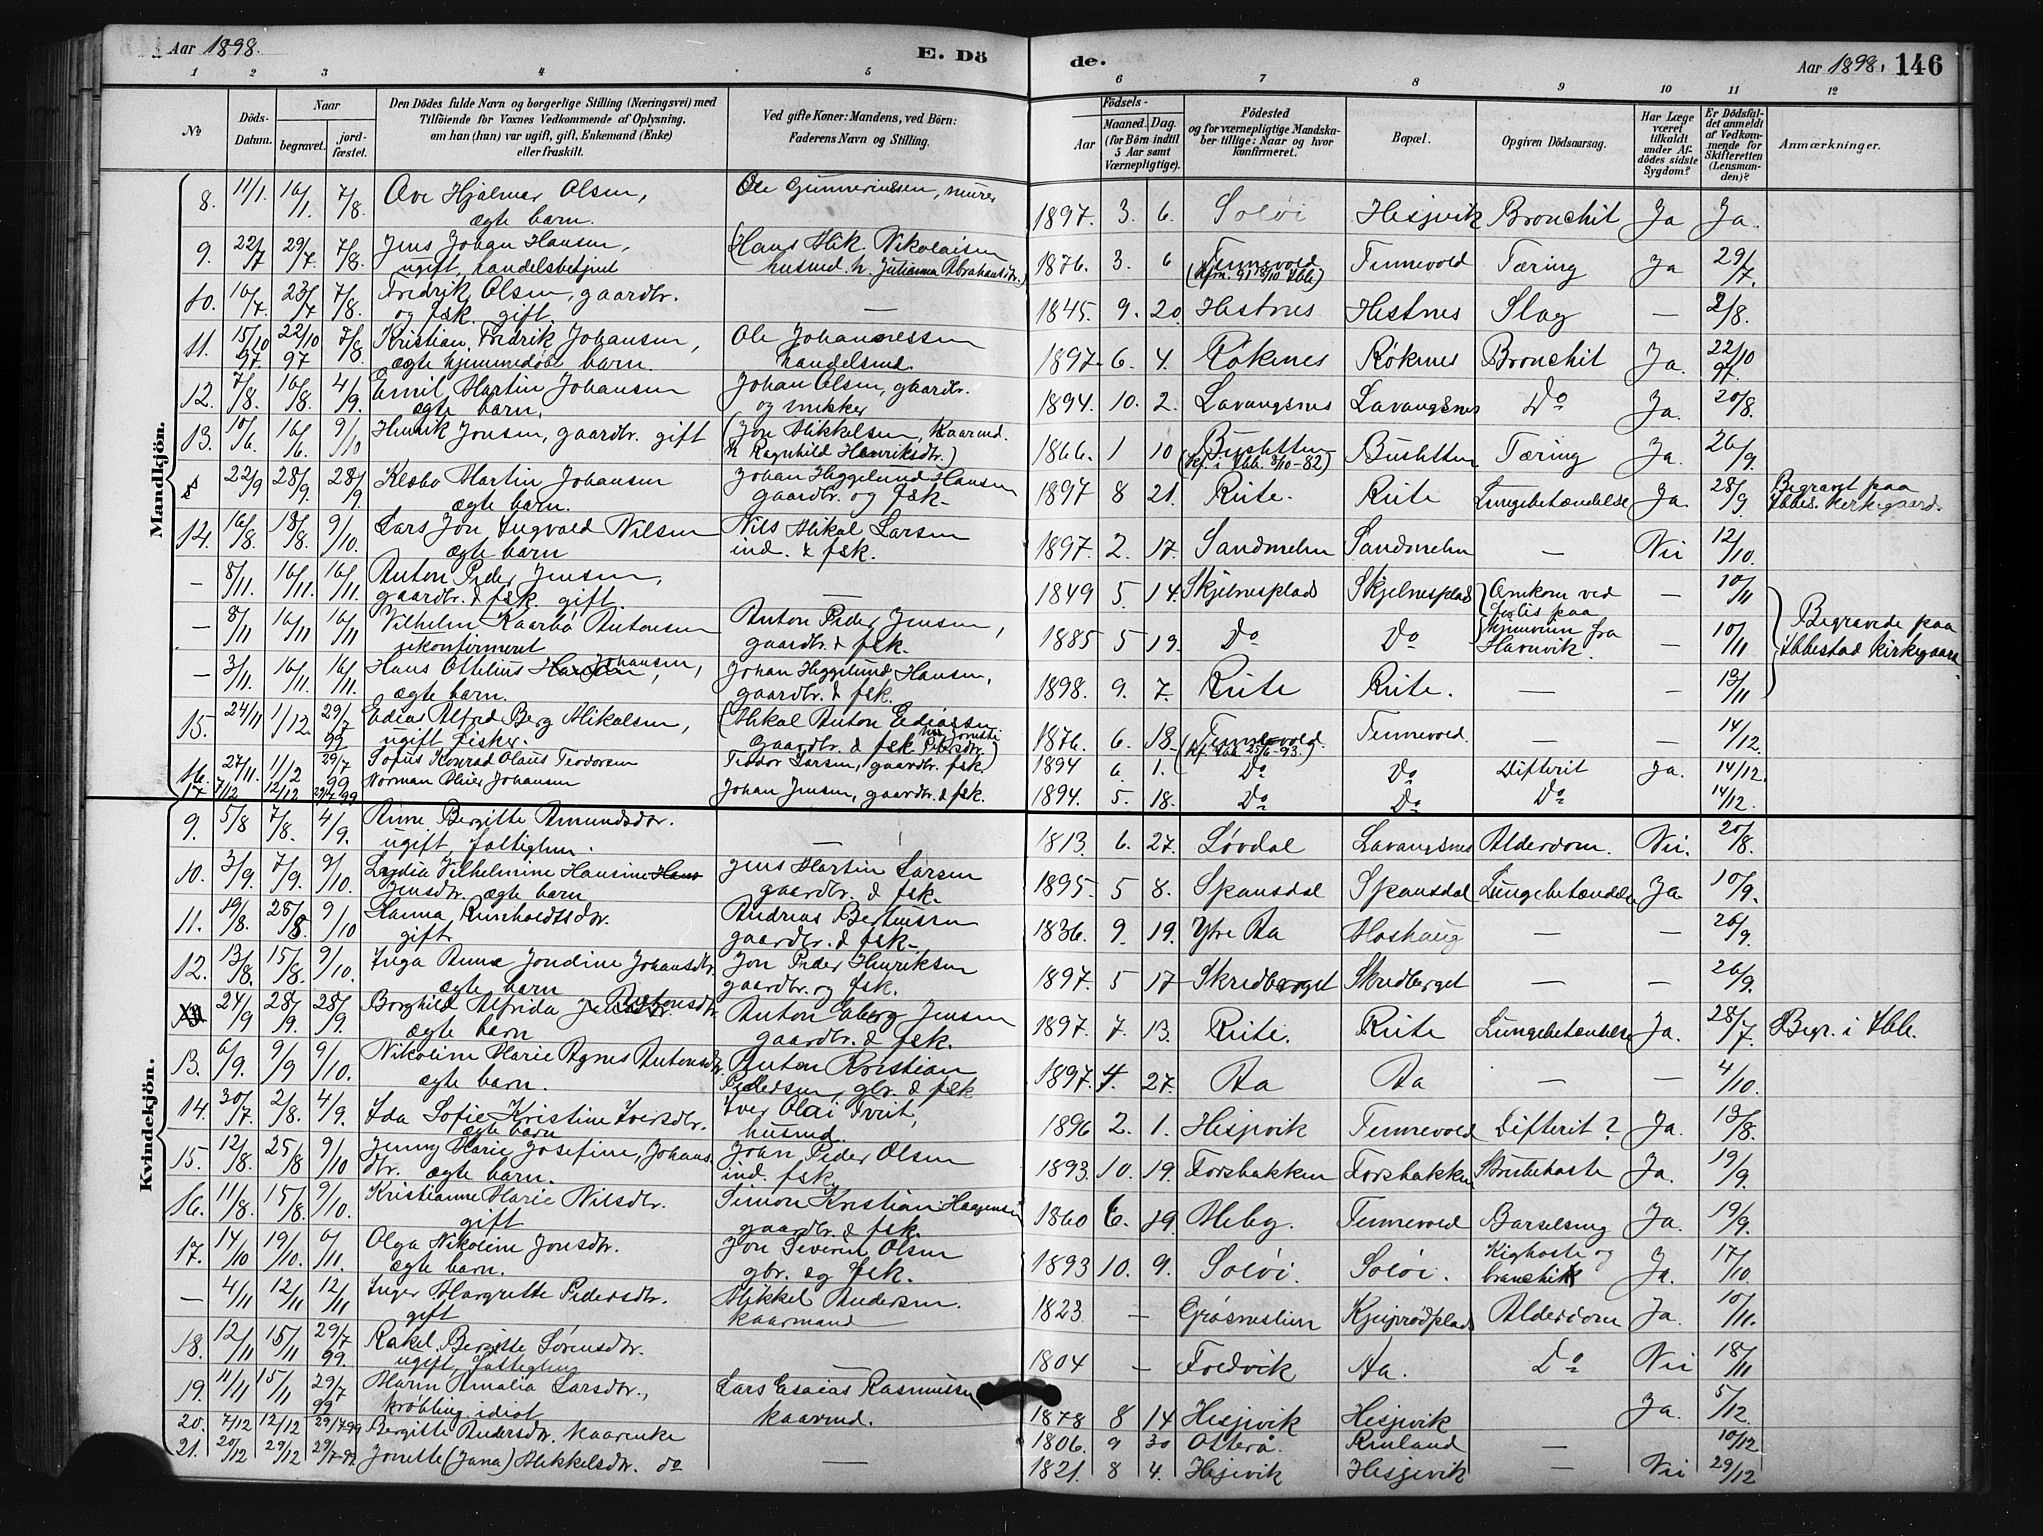 Aar 1898. E. Dö
de. Aar 1898. 146
1 2 3 4 5 6 7 8 9 10 11 12
No
Döds-Datum.
Naar
begravet.
jord-fæstet.
Den Dödes fulde Navn og borgerlige Stilling (Næringsvei) med
Tilföiende for Voxnes Vedkommende af Oplysning,
om han (hun) var ugift, gift, Enkemand (Enke)
eller fraskilt.
Ved gifte Koner: Mandens, ved Börn:
Faderens Navn og Stilling.
Födsels-
Aar
Maaned. Dag.
(for Börn indtil
5 Aar samt
Værnepligtige).
Födested
og for værnepligtige Mandska-
ber tillige: Naar og hvor
konfirmeret.
Bopæl.
Opgiven Dödsaarsag.
Har Læge
været
tilkaldt
under Af-
dödes sidste
Sygdom?
Er Dödsfal-
det anmeldt
af Vedkom-
mende for
Skifteretten
(Lensman-
den)?
Anmærkninger.
Mandkjön.
8. 11/1. 16/1. 7/8. Ove Hjalmar Olsen, ægte barn. Ole Gunneriussen, murer 1897. 3. 6. Soløi Hesjevik Bronchit Ja Ja.
9. 22/7 29/7. 7/8. Jens Johan Hansen, ugift, handelsbetjent (Hans Mik. Nikolaisen husmd. h. Julianna Abrahamsdtr.) 1876. 3. 6 Tennevold (Kfm. 91 Ibb) Tennevold Tæring Ja 29/7.
10. 16/7. 23/7 7/8. Fredrik Olsen, gaardbr. og fsk. gift. — 1845. 9. 20. Hestnes Hestnes Slag — 2/8.
11. 15/10 97. 22/10 97 7/8. Kristian Fredrik Johansen, ægte hjemmedøbt barn. Ole Johannessen handelsmd. 1897. 6. 4. Røknes Røknes Bronchit Ja. 22/10 97.
12. 7/8. 16/8. 4/9. Emil Martin Johansen ægte barn. Johan Olsen, gaardbr. og snikker 1894. 10. 2. Lavangsnes Lavangsnes Do Ja. 20/8.
13. 10/6. 16/6. 9/10 Henrik Jonsen, gaardbr. gift (Jon Mikkelsen, Kaarmd. h Ragnhild Henriksdtr.) 1866. 1 10 Busletten (Kf. i Ibb. 8/10-82) Busletten Tæring Ja. 26/9.
22/9 28/9. 28/9. Klæbo Martin Johansen ægte barn. Johan Heggelund Hansen gaardbr. og fsk. 1897 8 21. Rute. Rute Lungebetændelse Ja. 28/9. Begravet paa Ibbes. Kirkegaard.
14. 16/8. 18/8. 9/10. Lars Jon Ingvald Nilsen ægte barn Nils Mikal Larsen ind. & fsk. 1897. 2. 17. Sandmelen Sandmelen — Nei 12/10.
— 8/11. 16/11. 16/11. Anton Peder Jensen, gaardbr. & fsk. gift. — 1849 5. 14. Skjelnesplads Skjelnesplads Omkom ved forlis paa hjemveien fra Havnvik. — 10/11 Begravede paa Ibbestad kirkegaard
— 8/11 16/11 16/11 Vilhelm Kaarbø Antonsen ukonfirmeret Anton Peder Jensen, gaardbr. & fsk. 1885 5 19. Do Do — 10/11
— 3/11. 16/11. 16/11. Hans Ottelius Johansen, ægte barn. Johan Heggelund Hansen, gaardbr. & fsk. 1898. 9. 7. Rute Rute. — — 13/11
15. 24/11 1/12. 29/7 99 Edias Alfred Berg Mikalsen, ugift fisker. (Mikal Anton Ediassen gaardbr. & fsk. 1876. 6. 18. Tennevold. (Kf. Ibb. 25/6-93.) Tennevold. — — 14/12.
16. 27/11. 11/2 29/7 99 Sofus Konrad Olaus Teodorsen Teodor Larsen, gaardbr. fsk. 1894 6. 1. Do Do Difterit Ja. 14/12.
17. 7/12 12/12 29/7 99 Norman Oliver Johansen Johan Jensen, gaardbr. & fsk. 1894. 5. 18. Do Do Do 14/12.
Kvindekjön.
9. 5/8 7/8. 4/9. Anne Bergitte Amundsdtr. ugift, fattiglem. — 1813. 6. 27. Løvdal Lavangsnes Alderdom. Nei. 20/8.
10. 3/9. 7/9. 9/10. Lydia Vilhelmine Hansine Jensdtr. ægte barn Jens Martin Larsen gaardbr. & fsk. 1895 5 8. Spansdal Spansdal Lungebetændelse Ja. 10/9.
11. 19/8. 28/8. 9/10 Hanna Reinholdtsdtr. gift Andreas Berteussen gaardbr. & fsk. 1836. 9. 19. Ytre Aa Moshaug — — 26/9.
12. 13/8. 15/8. 9/10. Inga Anna Jondine Johansdtr. ægte barn Jon Peder Henriksen gaardbr. og fsk. 1897. 5 17 Skredberget Skredberget — — 26/9.
24/9 28/9. 28/9. Borghild Alfrida Antonsdtr. ægte barn Anton Eberg Jensen gaardbr. & fsk. 1897. 7. 13. Rute. Rute Lungebetændelse Ja. 28/7. Begr. i Ibb.
13. 6/9. 9/9 9/10. Nikoline Marie Agnes Antonsdtr. ægte barn. Anton Kristian Pedersen, gbr. & fsk 1897. 4. 27. Aa Aa — — 4/10.
14. 30/7 2/8. 4/9. Ida Sofie Kristine Iversdtr. ægte barn Iver Olai Tveit, husmd. 1896 2. 1. Hesjevik Tennevold Difterit? Ja. 13/8.
15. 12/8. 25/8 9/10 Jenny Marie Josefine, Johansdtr. ægte barn. Johan Peder Olsen ind. fsk. 1893. 10. 19. Forsbakken Forsbakken Strubehoste Ja. 19/9.
16. 11/8. 15/8. 9/10. Kristianne Marie Nilsdtr. gift Simon Kristian Haagensen gaardbr. & fsk. 1860 6. 19. Meby. Tennevold Barselseng Ja. 19/9.
17. 14/10 19/10. 6/11 Olga Nikoline Jonsdtr. ægte barn. Jon Severin Olsen gbr. og fsk. 1893 10. 9. Soløi. Soløi. Kighoste og bronchit Ja. 17/10.
— 4/11 12/11 12/11 Inger Margrethe Pedersdtr. gift Mikkel Andersen. kaarmand 1823. — Grøsneslien Kjeiprødplads Alderdom Ja. 10/11.
18. 12/11 15/11 29/7 99. Rakel Bergitte Sørensdtr. ugift, fattiglem 1804 — Fredvik Aa. Do Nei 18/11
19. 11/11 15/11 29/7 99 Maren Amalia Larsdtr., krøbling, idiot Lars Esaias Rasmussen kaarmd. 1878 8 14 Hesjevik Hesjevik Ja. 5/12.
20. 7/12 12/12 29/7 99 Bergitte Andersdtr. kaarenke 1806. 9 30 Otterå. Renland — 10/12.
21. 20/12 29/12 29/7-99 Jonette (Jana) Mikkelsdtr. do — 1821. 8 4. Hesjevik Hesjevik — Nei 29/12